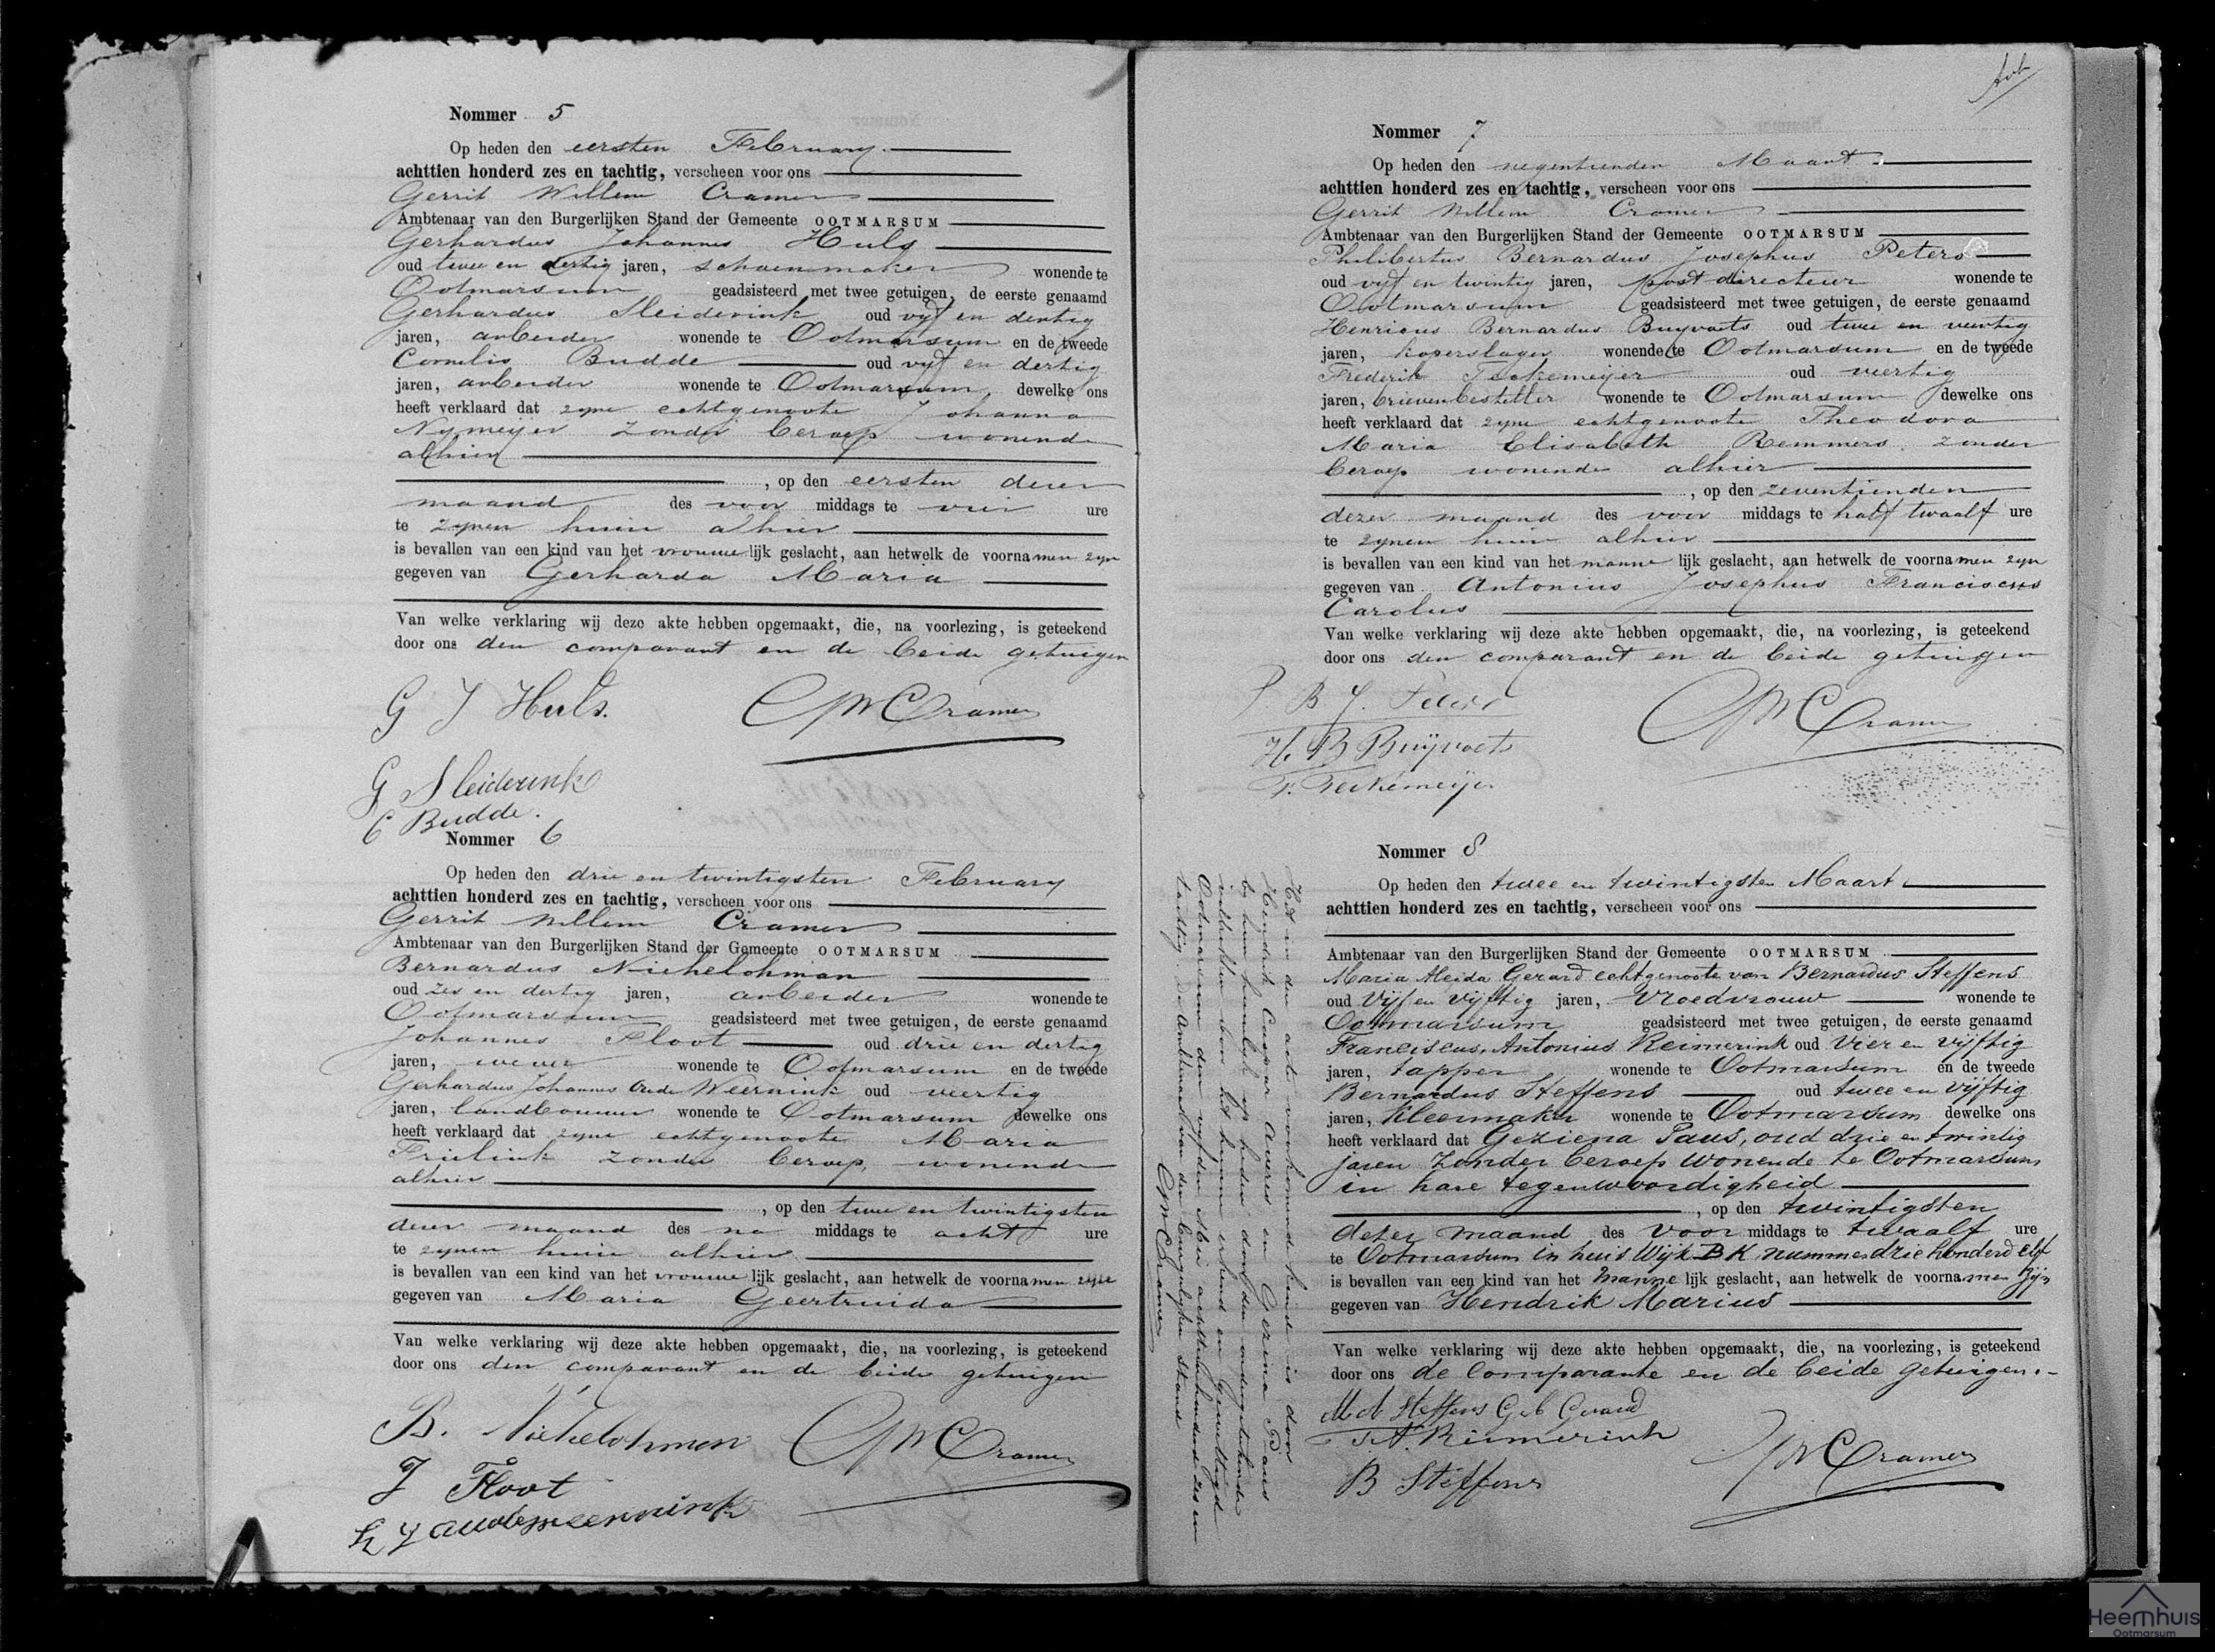 Nommer 5
Op heden den eersten February
achttien honderd zes en tachtig, verscheen voor ons
Gerrit Willem Cramer
Ambtenaar van den Burgerlijken Stand der Gemeente OOTMARSUM
Gerhardus Johannes Huls
oud twee en dertig jaren, schoenmaker wonende te
Ootmarsum geadsisteerd met twee getuigen, de eerste genaamd
Gerhardus Sleiderink oud vijf en dertig
jaren, arbeider wonende te Ootmarsum en de tweede
Cornelis Budde oud vijf en dertig
jaren, arbeider wonende te Ootmarsum, dewelke ons
heeft verklaard dat zyne echtgenoote Johanna
Nymeijer zonder beroep wonende
alhier
, op den eersten dezer
maand des voor middags te vier ure
te zynen huize alhier
is bevallen van een kind van het vrouwelijk geslacht, aan hetwelk de voornamen zyn
gegeven van Gerharda Maria
Van welke verklaring wij deze akte hebben opgemaakt, die, na voorlezing, is geteekend
door ons den comparant en de beide getuigen
G J Huls. GWCramer
G Sleiderink
C Budde.
Nommer 6
Op heden den drie en twintigsten February
achttien honderd zes en tachtig, verscheen voor ons
Gerrit Willem Cramer
Ambtenaar van den Burgerlijken Stand der Gemeente OOTMARSUM
Bernardus Nichelohman
oud zes en dertig jaren, arbeider wonende te
Ootmarsum geadsisteerd met twee getuigen, de eerste genaamd
Johannes Floot oud drie en dertig
jaren, wever wonende te Ootmarsum en de tweede
Gerhardus Johannes Oude Weernink oud veertig
jaren, landbouwer wonende te Ootmarsum dewelke ons
heeft verklaard dat zyne echtgenoote Maria
Frielink zonder beroep, wonende
alhier
, op den twee en twintigsten
dezer maand des na middags te acht ure
te zynen huize alhier
is bevallen van een kind van het vrouwelijk geslacht, aan hetwelk de voornamen zyn
gegeven van Maria Geertruida
Van welke verklaring wij deze akte hebben opgemaakt, die, na voorlezing, is geteekend
door ons den comparant en de beide getuigen
B. Nichelohman GWCramer
J Floot
Nommer 7
Op heden den negentienden Maart
achttien honderd zes en tachtig, verscheen voor ons
Gerrit Willem Cramer
Ambtenaar van den Burgerlijken Stand der Gemeente OOTMARSUM
Philibertus Bernardus Josephus Peters
oud vijf en twintig jaren, postdirecteur wonende te
Ootmarsum geadsisteerd met twee getuigen, de eerste genaamd
Henricus Bernardus Buyvoets oud twee en veertig
jaren, koperslager wonende te Ootmarsum en de tweede
Frederik Teckemeijer oud veertig
jaren, brievenbesteller wonende te Ootmarsum dewelke ons
heeft verklaard dat zyne echtgenoote Theodora
Maria Elisabeth Remmers zonder
beroep wonende alhier
, op den zeventienden
dezer maand des voor middags te half twaalf ure
te zynen huize alhier
is bevallen van een kind van het mannelijk geslacht, aan hetwelk de voornamen zyn
gegeven van Antonius Josephus Franciscus
Carolus
Van welke verklaring wij deze akte hebben opgemaakt, die, na voorlezing, is geteekend
door ons den comparant en de beide getuigen
P B J. Peters GWCramer
H. B Buijvoets
F. Teckemeijer
Nommer 8
Op heden den twee en twintigsten Maart
achttien honderd zes en tachtig, verscheen voor ons
Ambtenaar van den Burgerlijken Stand der Gemeente OOTMARSUM
Maria Aleida Gerard echtgenoote van Bernardus Steffens
oud Vijf en Vijftig jaren, Vroedvrouw wonende te
Ootmarsum geadsisteerd met twee getuigen, de eerste genaamd
Franciscus, Antonius Reimerink oud Vier en Vijftig
jaren, tapper wonende te Ootmarsum en de tweede
Bernardus Steffens oud twee en Vijftig
jaren, Kleermaker wonende te Ootmarsum dewelke ons
heeft verklaard dat Geziena Paus, oud drie en twintig
jaren zonder beroep wonende te Ootmarsum
in hare tegenwoordigheid
, op den twintigsten
dezer maand des Voor middags te twaalf ure
te Ootmarsum in huis Wijk B K nummer drie honderd elf
is bevallen van een kind van het Mannelijk geslacht, aan hetwelk de voornamen zijn
gegeven van Hendrik Marius
Van welke verklaring wij deze akte hebben opgemaakt, die, na voorlezing, is geteekend
door ons de Comparante en de beide getuigen.-
M A Steffens Geb Gerard
F.A. Reimerink GWCramer
B Steffens
Het in de acte voorkomend kind is door
Hendrik Caspar Averes en Gezina Paus
by hun huwelyk op heden donderdag
voltrokken door het hunne erkend en gewettigd
Ootmarsum den vyfden Mei achttienhonderd zes en
tachtig. De Ambtenaar van den burgerlyken stand
GWCramer
Heemhuis
Ootmarsum